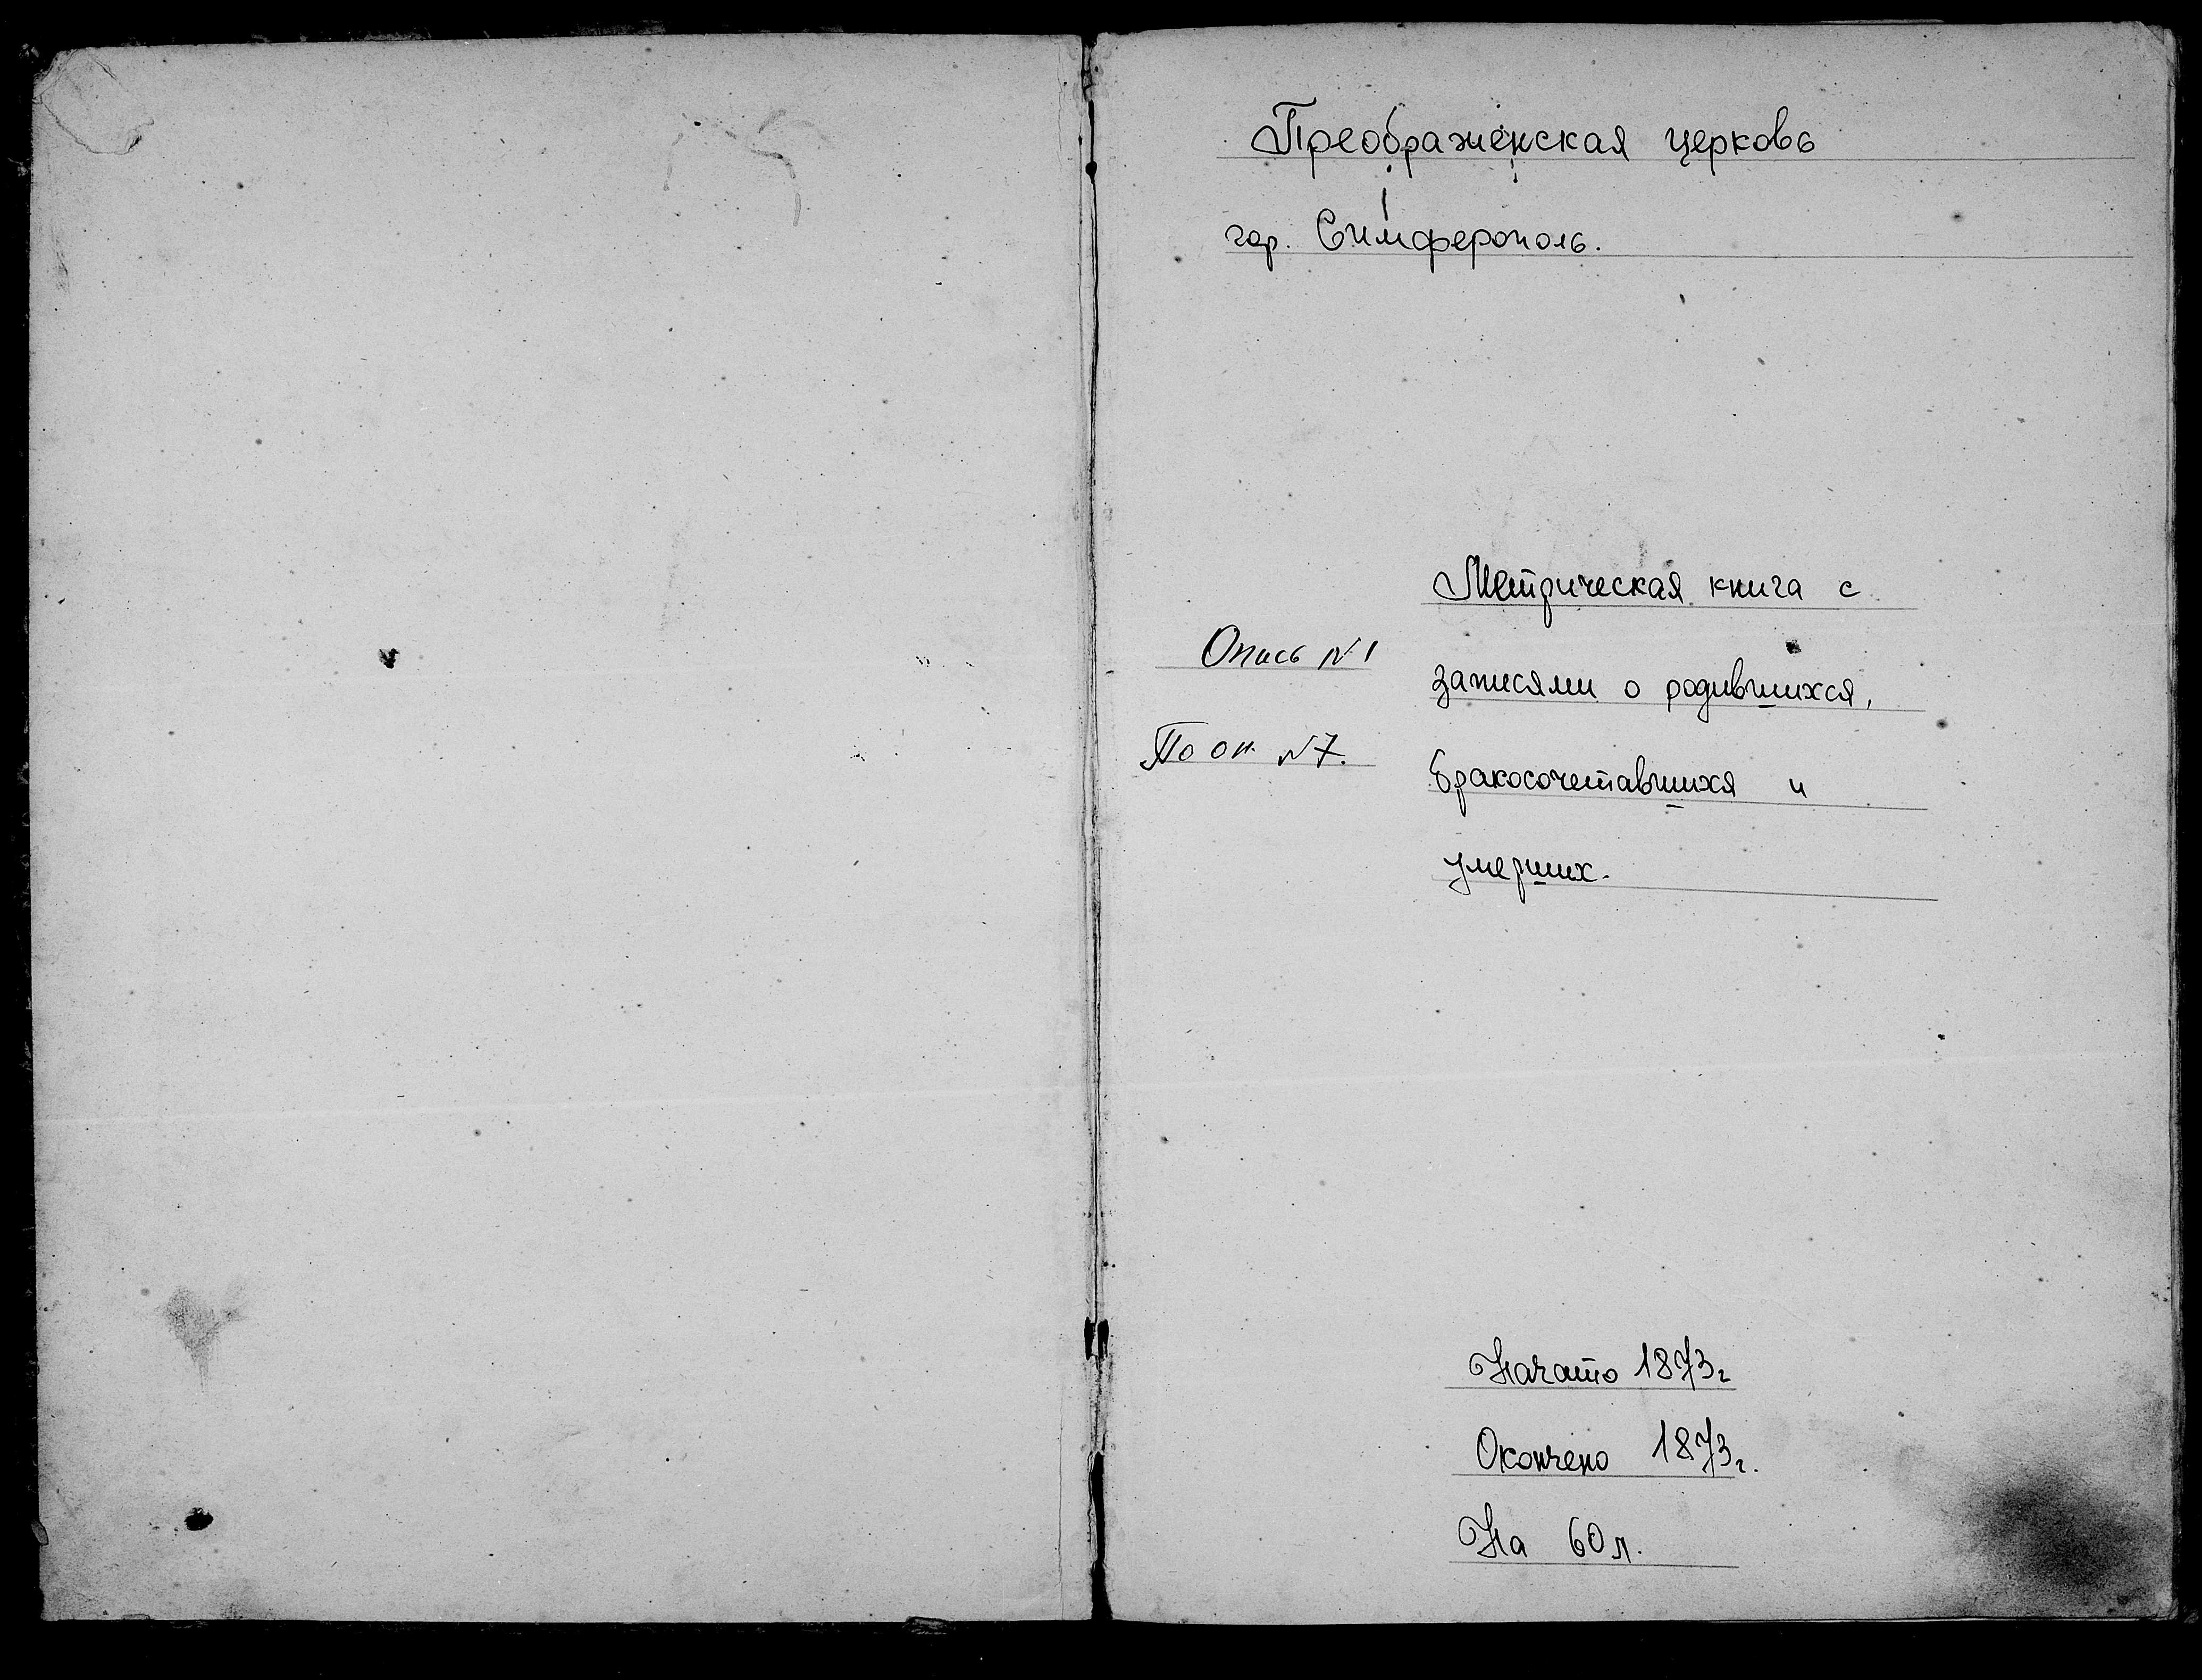 Преображенская церковь
гор. Симферополь.
Метрическая книга с
Опись №1
записями о родившихся,
По оп. №7.
бракосочетавшихя и
умерших.
Начато 1873г
Окончено 1873г.
На 60 л.